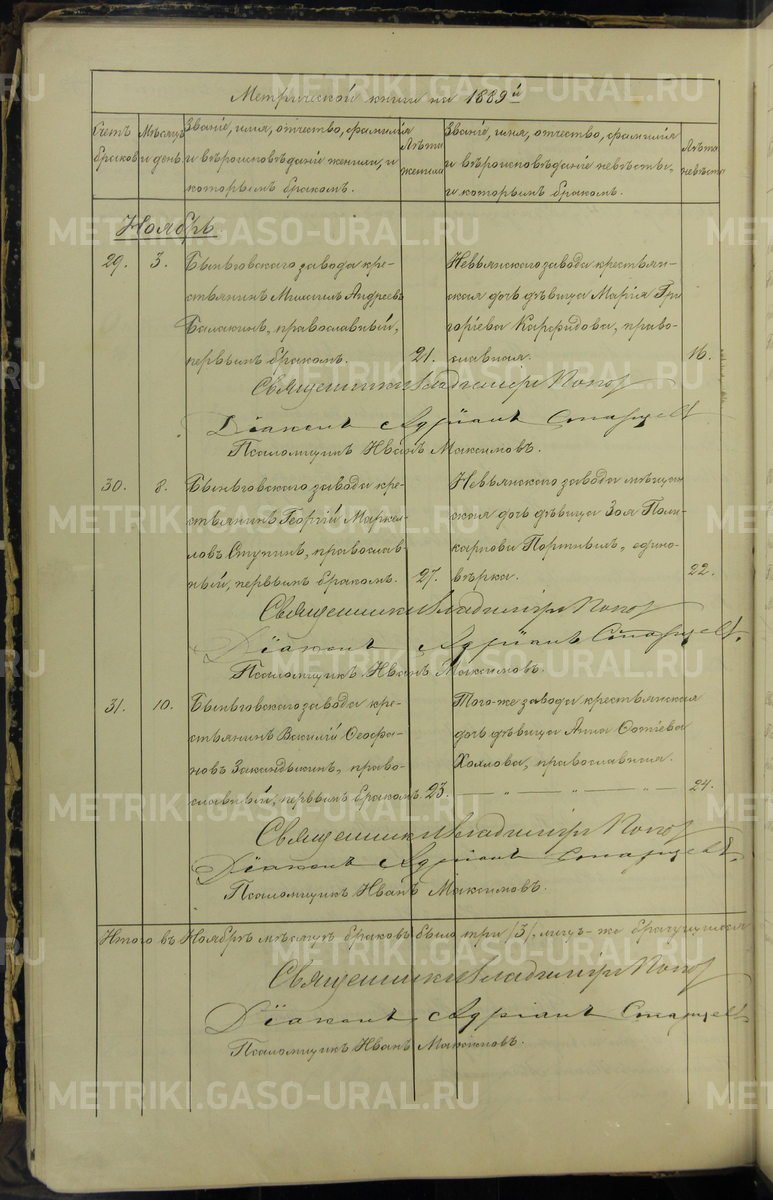 Метрической книги на 1889й
Счетъ браковъ
Мѣсяцъ и день.
Званіе, имя, отчество, фамилія
и вѣроисповѣданіе жениха, и
которымъ бракомъ.
Лѣта жениха
Званіе, имя, отчество, фамилія
и вѣроисповѣданіе невѣсты,
и которымъ бракомъ.
Лѣта невѣсты
Ноябрь.
29. 3.
Быньговскаго завода кре-
стьянинъ Михаилъ Андреевъ
Балакинъ, православный,
первымъ бракомъ. 21.
Невьянскаго завода крестьян-
ская дочь дѣвица Марія Гри
горіева Карфидова, право-
славная. 16.
Священникъ Владиміръ Попов
Діаконъ Адріанъ
Псаломщикъ Иванъ Максимовъ.
30. 8.
Быньговскаго завода кре-
стьянинъ Георгій Маркел-
ловъ Ступинъ, православ-
ный, первымъ бракомъ. 27.
Невьянскаго завода мѣщан
ская дочь дѣвица Зоя Поли
карпова, едино-
вѣрка. 22.
Священникъ Владиміръ Попов
Діаконъ Адріанъ
Псаломщикъ Иванъ Максимовъ.
31. 10.
Быньговскаго завода кре-
стьянинъ Василій Ѳеофа-
новъ, право-
славный, первымъ бракомъ. 23.
Того-же завода крестьянская
дочь дѣвица Анна Фотіева
православная.
— „ — „ — „ — 24.
Священникъ Владиміръ Попов
Діаконъ Адріанъ
Псаломщикъ Иванъ Максимовъ.
Итого въ Ноябрѣ мѣсяцѣ браковъ было три /3/, лицъ-же брачущихся
Священникъ Владиміръ Попов
Діаконъ Адріанъ
Псаломщикъ Иванъ Максимовъ.
METRIKI.GASO-URAL.RU